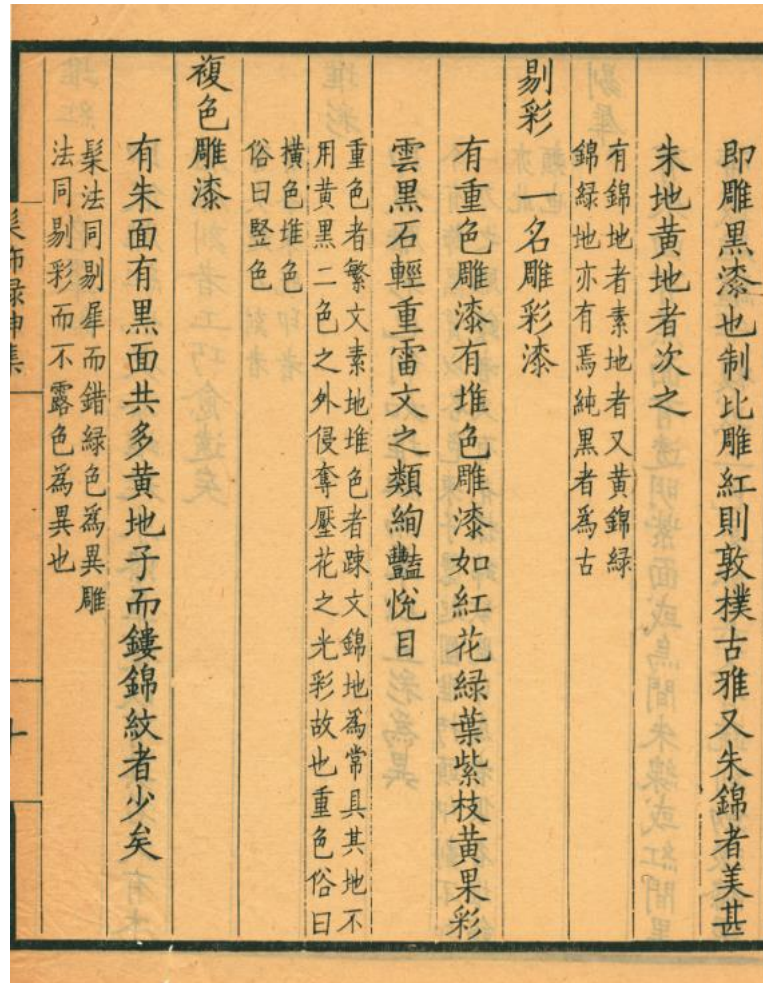 即雕黑漆也制比雕紅則敦樸古雅又朱錦者美甚
朱地黃地者次之
有錦地者素地者又黃錦緑
錦緑地亦有焉純黑者爲古
剔彩 一名雕彩漆
有重色雕漆有堆色雕漆如紅花緑葉紫枝黃果彩
雲黑石輕重雷文之類絢豔悅目
重色者繁文素地堆色者踈文錦地爲常具其地不
用黃黑二色之外侵奪壓花之光彩故也重色俗曰
橫色堆色
俗曰竪色
複色雕漆
有朱面有黑面共多黃地子而鏤錦紋者少矣
髤法同剔犀而錯緑色爲異雕
法同剔彩而不露色爲異也